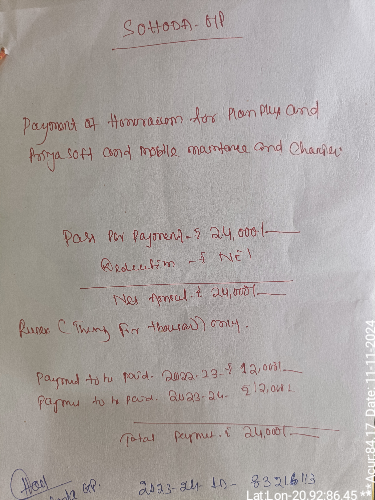 SOHODA-G/P
Payment of Honoraium for Plan Plus and
Priya Soft and mobile maintance and Charges.
Pass for Payment-₹ 24,000/-
Deduction -₹ NIL
Net amount ₹ 24,000/-
Rupees ( Twenty For thousand) only.
Payment to be paid- 2022-23-₹ 12,000/-
Payment to be paid- 2023-24- ₹ 12,000/-
Total Payment-₹ 24,000/-
GP. 2023-24
Lat Lon-20.92:86.45 ** Acur:84.17_Date:11-11-2024